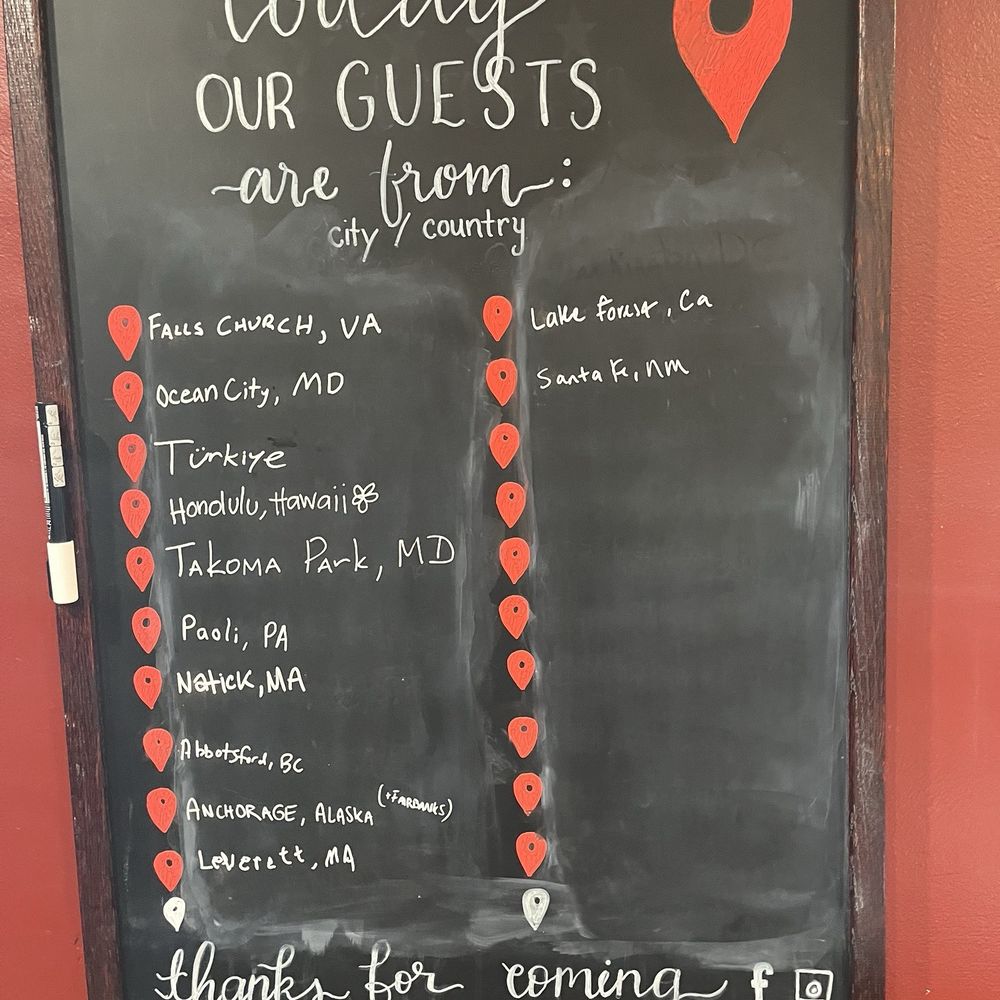 today
OUR GUESTS
are from:
city / country
FALLS CHURCH, VA
Ocean City, MD
Türkiye
Honolulu, Hawaii
TAKOMA Park, MD
Paoli, PA
Natick, MA
Abbotsford, BC
ANCHORAGE, ALASKA (+FAIRBANKS)
Leverett, MA
Lake Forest, Ca
Santa Fe, nm
thanks for coming f